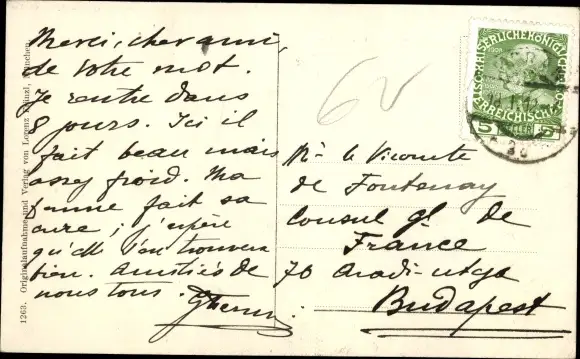 Merci, cher ami,
de votre mot.
Je rentre dans
8 jours. Ici il
fait beau mais
assez froid. Ma
femme fait sa
cure ; j'espère
qu'elle s'en trouvera
bien. Amitiés de
nous tous.
1263. Originalaufnahme und Verlag von Lorenz München.
KAISERLICHE KÖNIGLICHE
ÖSTERREICHISCHE
5 HELLER 5
Mr. le Vicomte
de Fontenay
Consul gl. de
France
70 Aradi-utca
Budapest